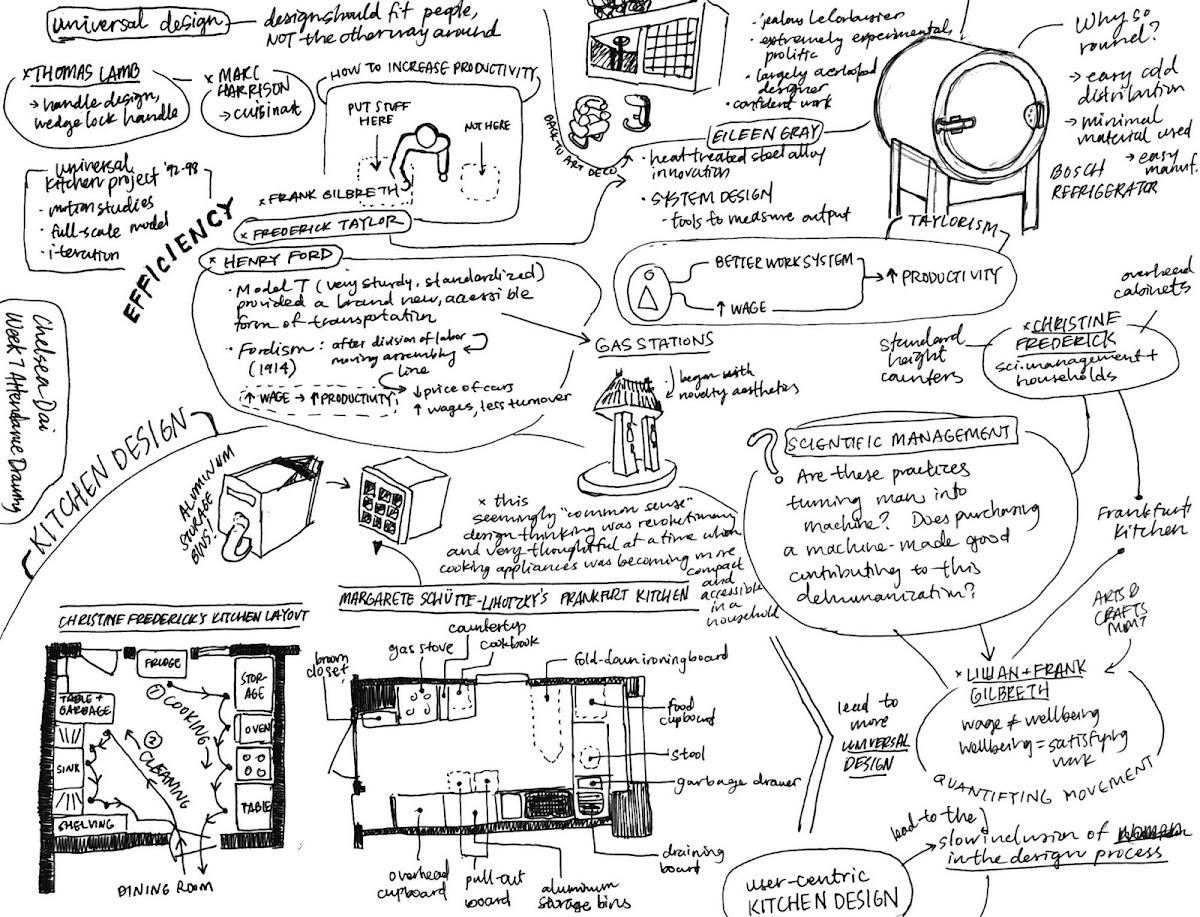 universal design
design should fit people,
NOT the other way around
× THOMAS LAMB
→ handle design,
wedge lock handle
× MARC
HARRISON
→ cuisinart
universal
kitchen project '92-98
· motion studies
· full-scale model
· iteration
HOW TO INCREASE PRODUCTIVITY
PUT STUFF
HERE
NOT HERE
× FRANK GILBRETH
× FREDERICK TAYLOR
EFFICIENCY
BACK TO ART DECO
· jealous Le Corbusier
· extremely experimental,
prolific
· largely
designer
· confident work
EILEEN GRAY
· heat treated steel alloy
innovation
· SYSTEM DESIGN
· tools to measure output
Why so
round?
→ easy cold
distribution
→ minimal
material used
→ easy
manuf.
BOSCH
REFRIGERATOR
TAYLORISM
BETTER WORK SYSTEM
↑ WAGE
↑ PRODUCTIVITY
× HENRY FORD
· Model T (very sturdy, standardized)
provided a brand new, accessible
form of transportation
· Fordism : after division of labor
(1914) moving assembling
line
↑ WAGE → ↑ PRODUCTIVITY
↓ price of cars
↑ wages, less turnover
GAS STATIONS
began with
novelty aesthetics
overhead
cabinets
standard
height
counters
× CHRISTINE
FREDERICK
sci. management +
households
Chelsea Dai
Week 7 Attendance Drawing
KITCHEN DESIGN
ALUMINUM
STORAGE
BINS!
× this
seemingly "common sense"
design thinking was revolutionary
and very thoughtful at a time when
cooking appliances was becoming more
compact
and
accessible
in a
household
?
SCIENTIFIC MANAGEMENT
Are these practices
turning man into
machine? Does purchasing
a machine-made good
contributing to this
dehumanization?
Frankfurt
Kitchen
ARTS &
CRAFTS
MVMT?
× LILLIAN + FRANK
GILBRETH
wage ≠ wellbeing
wellbeing = satisfying
work
QUANTIFYING MOVEMENT
lead to
more
UNIVERSAL
DESIGN
lead to the
slow inclusion of
in the design process
user-centric
KITCHEN DESIGN
CHRISTINE FREDERICK'S KITCHEN LAYOUT
FRIDGE
STOR-
AGE
TABLE +
GARBAGE
① COOKING
OVEN
② CLEANING
SINK
TABLE
SHELVING
DINING ROOM
MARGARETE SCHÜTTE-LIHOTZKY'S FRANKFURT KITCHEN
broom
closet
gas stove
countertop
cookbook
fold-down ironing board
food
cupboard
stool
garbage drawer
draining
board
overhead
cupboard
pull-out
board
aluminum
storage bins